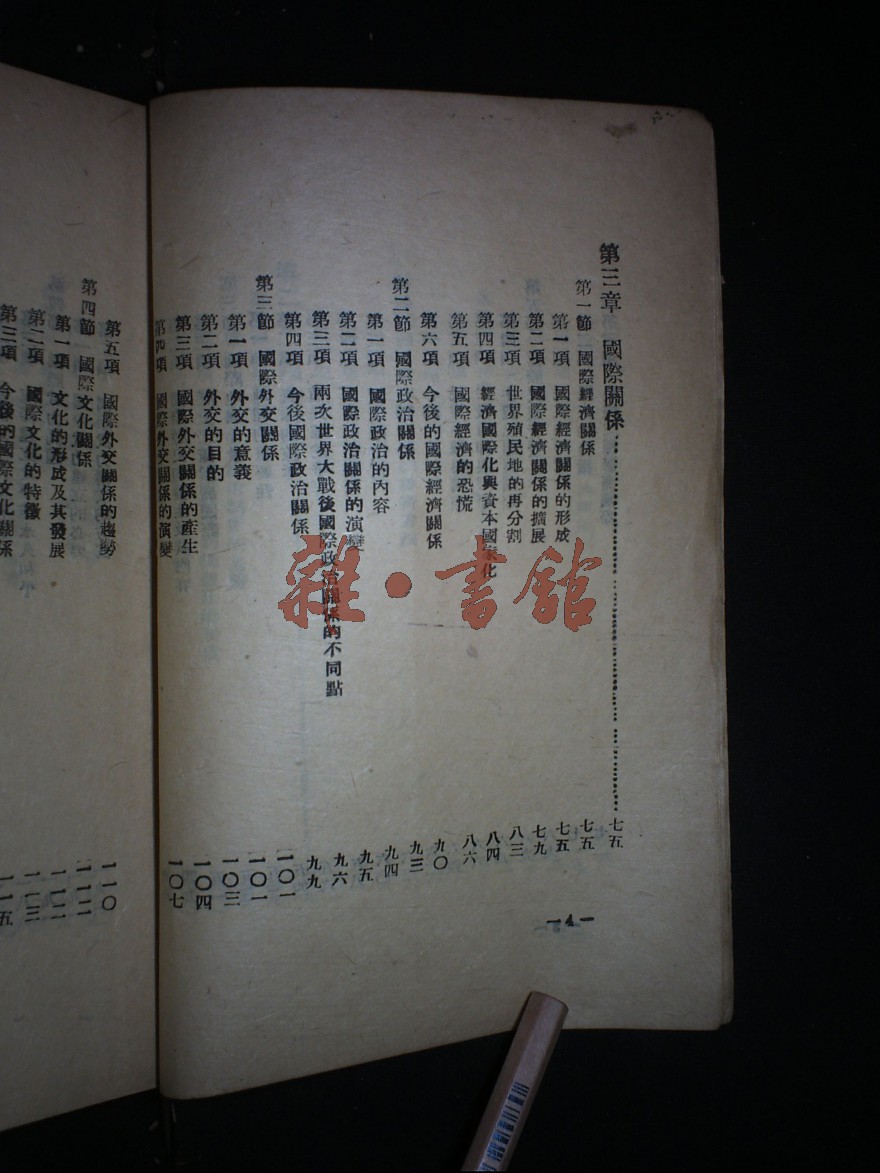 第三章 國際關係……………………七五
第一節 國際經濟關係 七五
第一項 國際經濟關係的形成 七五
第二項 國際經濟關係的擴展 七九
第三項 世界殖民地的再分割 八三
第四項 經濟國際化與資本國家化 八四
第五項 國際經濟的恐慌 八六
第六項 今後的國際經濟關係 九〇
第二節 國際政治關係 九三
第一項 國際政治的內容 九四
第二項 國際政治關係的演變 九五
第三項 兩次世界大戰後國際政治關係的不同點 九六
第四項 今後國際政治關係 九九
第三節 國際外交關係 一〇一
第一項 外交的意義 一〇一
第二項 外交的目的 一〇三
第三項 國際外交關係的產生 一〇四
第四項 國際外交關係的演變 一〇七
—4—
第五項 國際外交關係的趨勢 一一〇
第四節 國際文化關係 一一二
第一項 文化的形成及其發展 一一二
第二項 國際文化的特徵 一一三
第三項 今後的國際文化關係 一一五
雜·書館